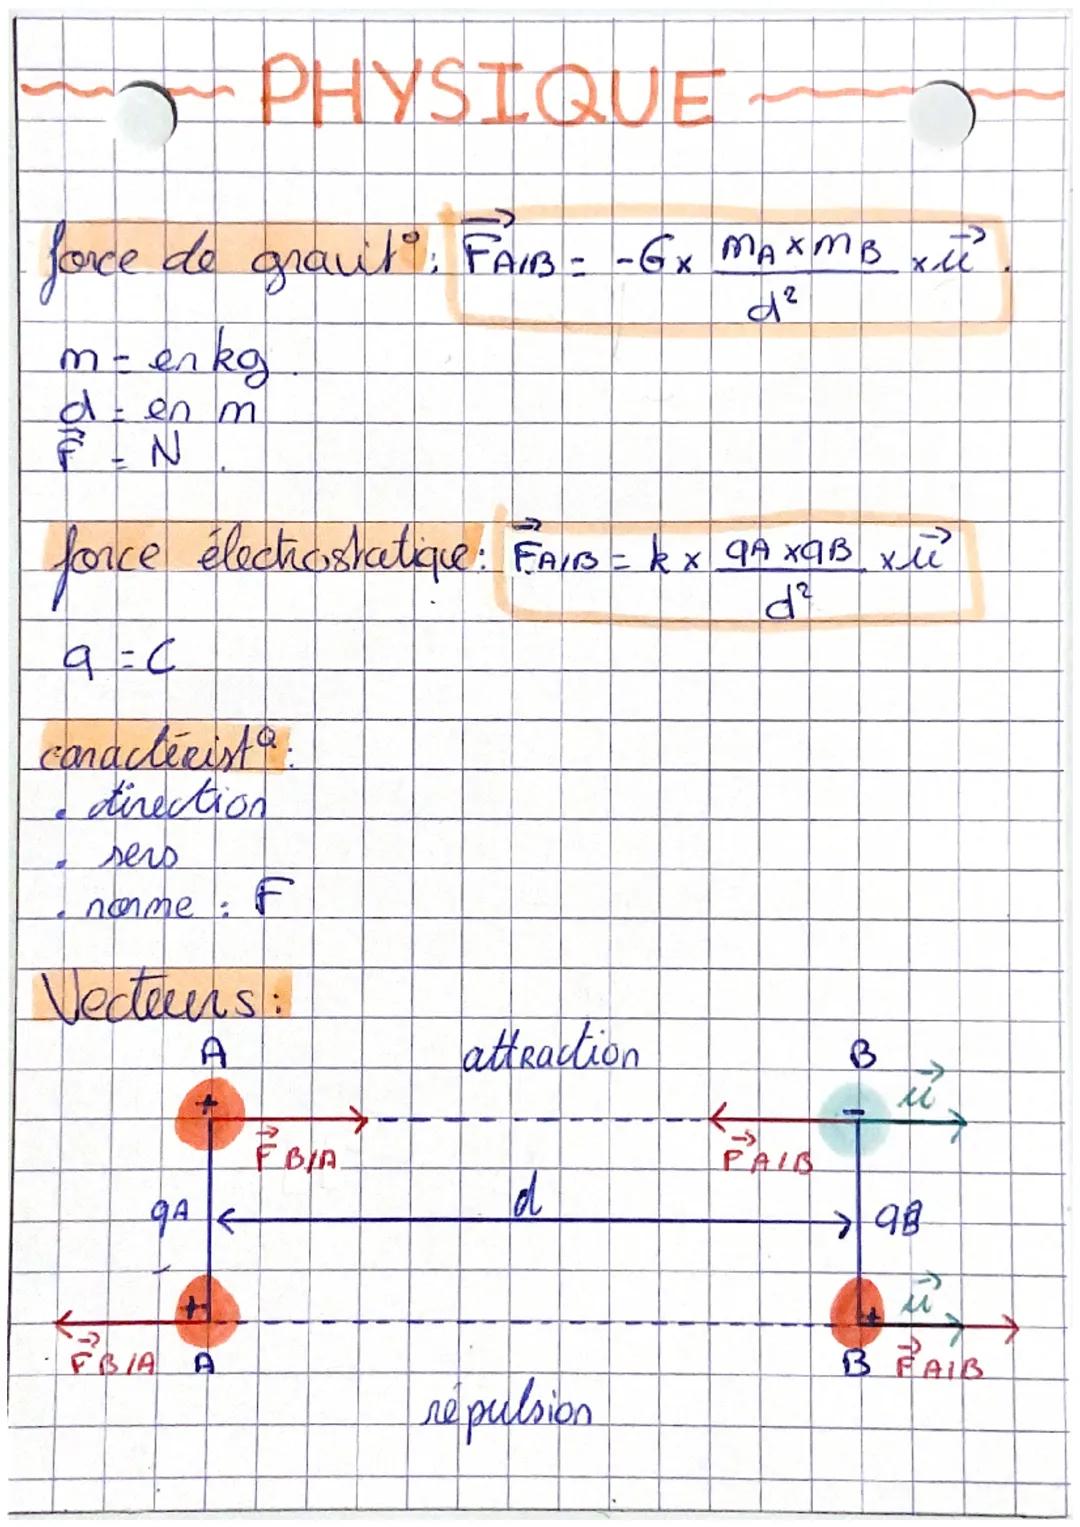 PHYSIQUE
force de gravit° : F⃗A/B = -G x mA x mB / d² x u⃗.
m = en kg.
d = en m
F⃗ = N.
force électrostatique : F⃗A/B = k x qA x qB / d² x u⃗
q = C
caractéristQ :
. direction
. sens
. norme : F
Vecteurs :
A attraction B
+ - u⃗
F⃗ B/A F⃗ A/B
qA d qB
+ + u⃗
F⃗ B/A A B F⃗ A/B
répulsion